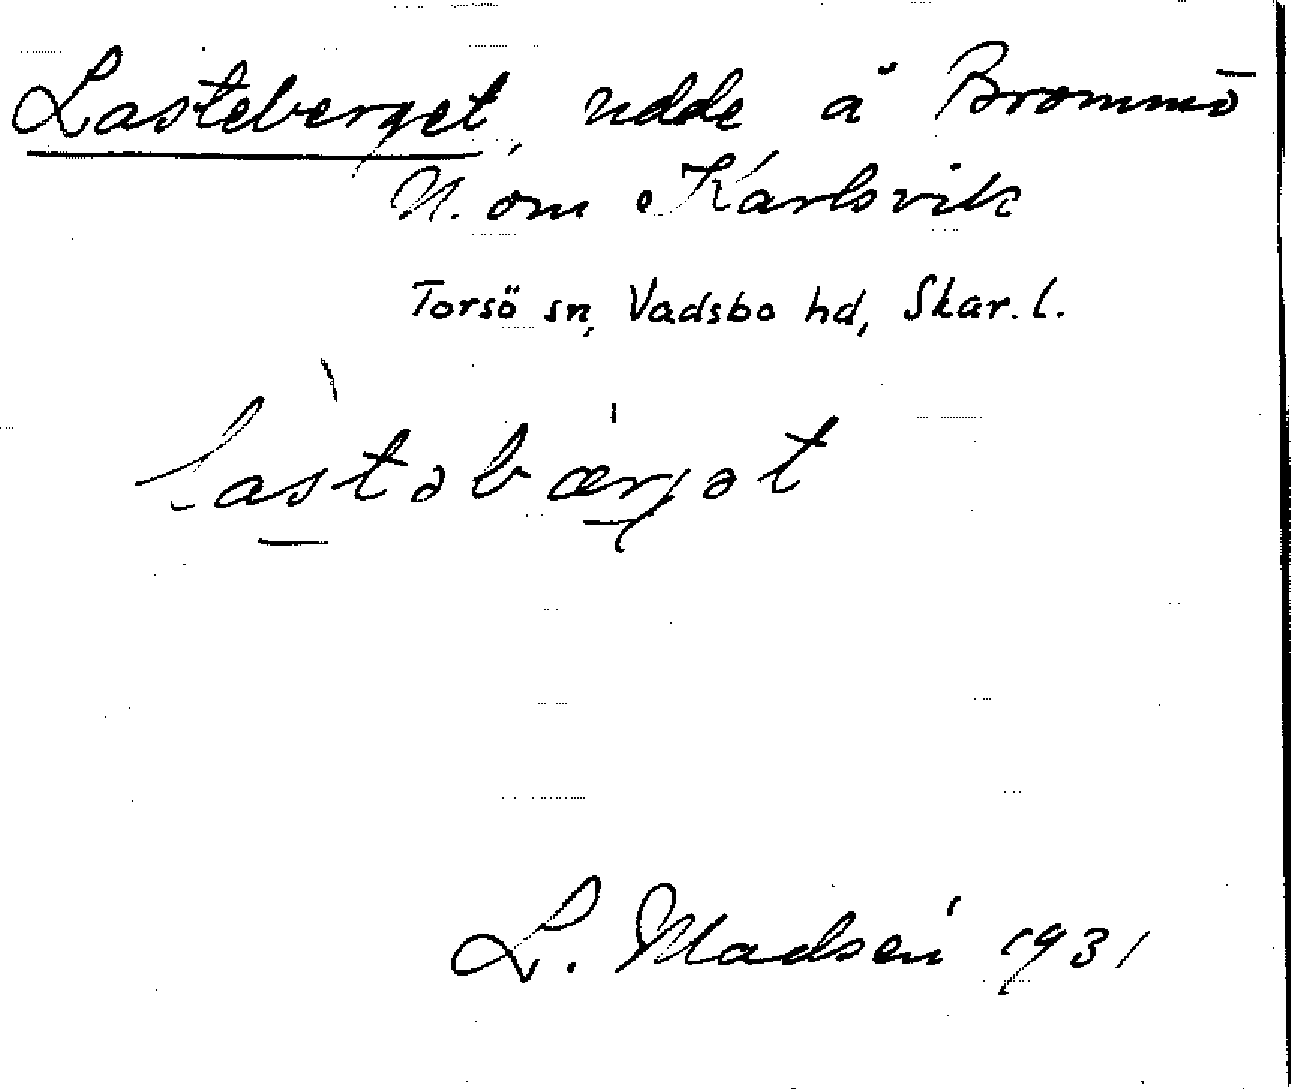 Lasteberget, udde å Brommö
N. om Karlsvik
Torsö sn, Vadsbo hd, Skar. l.
làstəbær̍jət
L. Madsén 1931